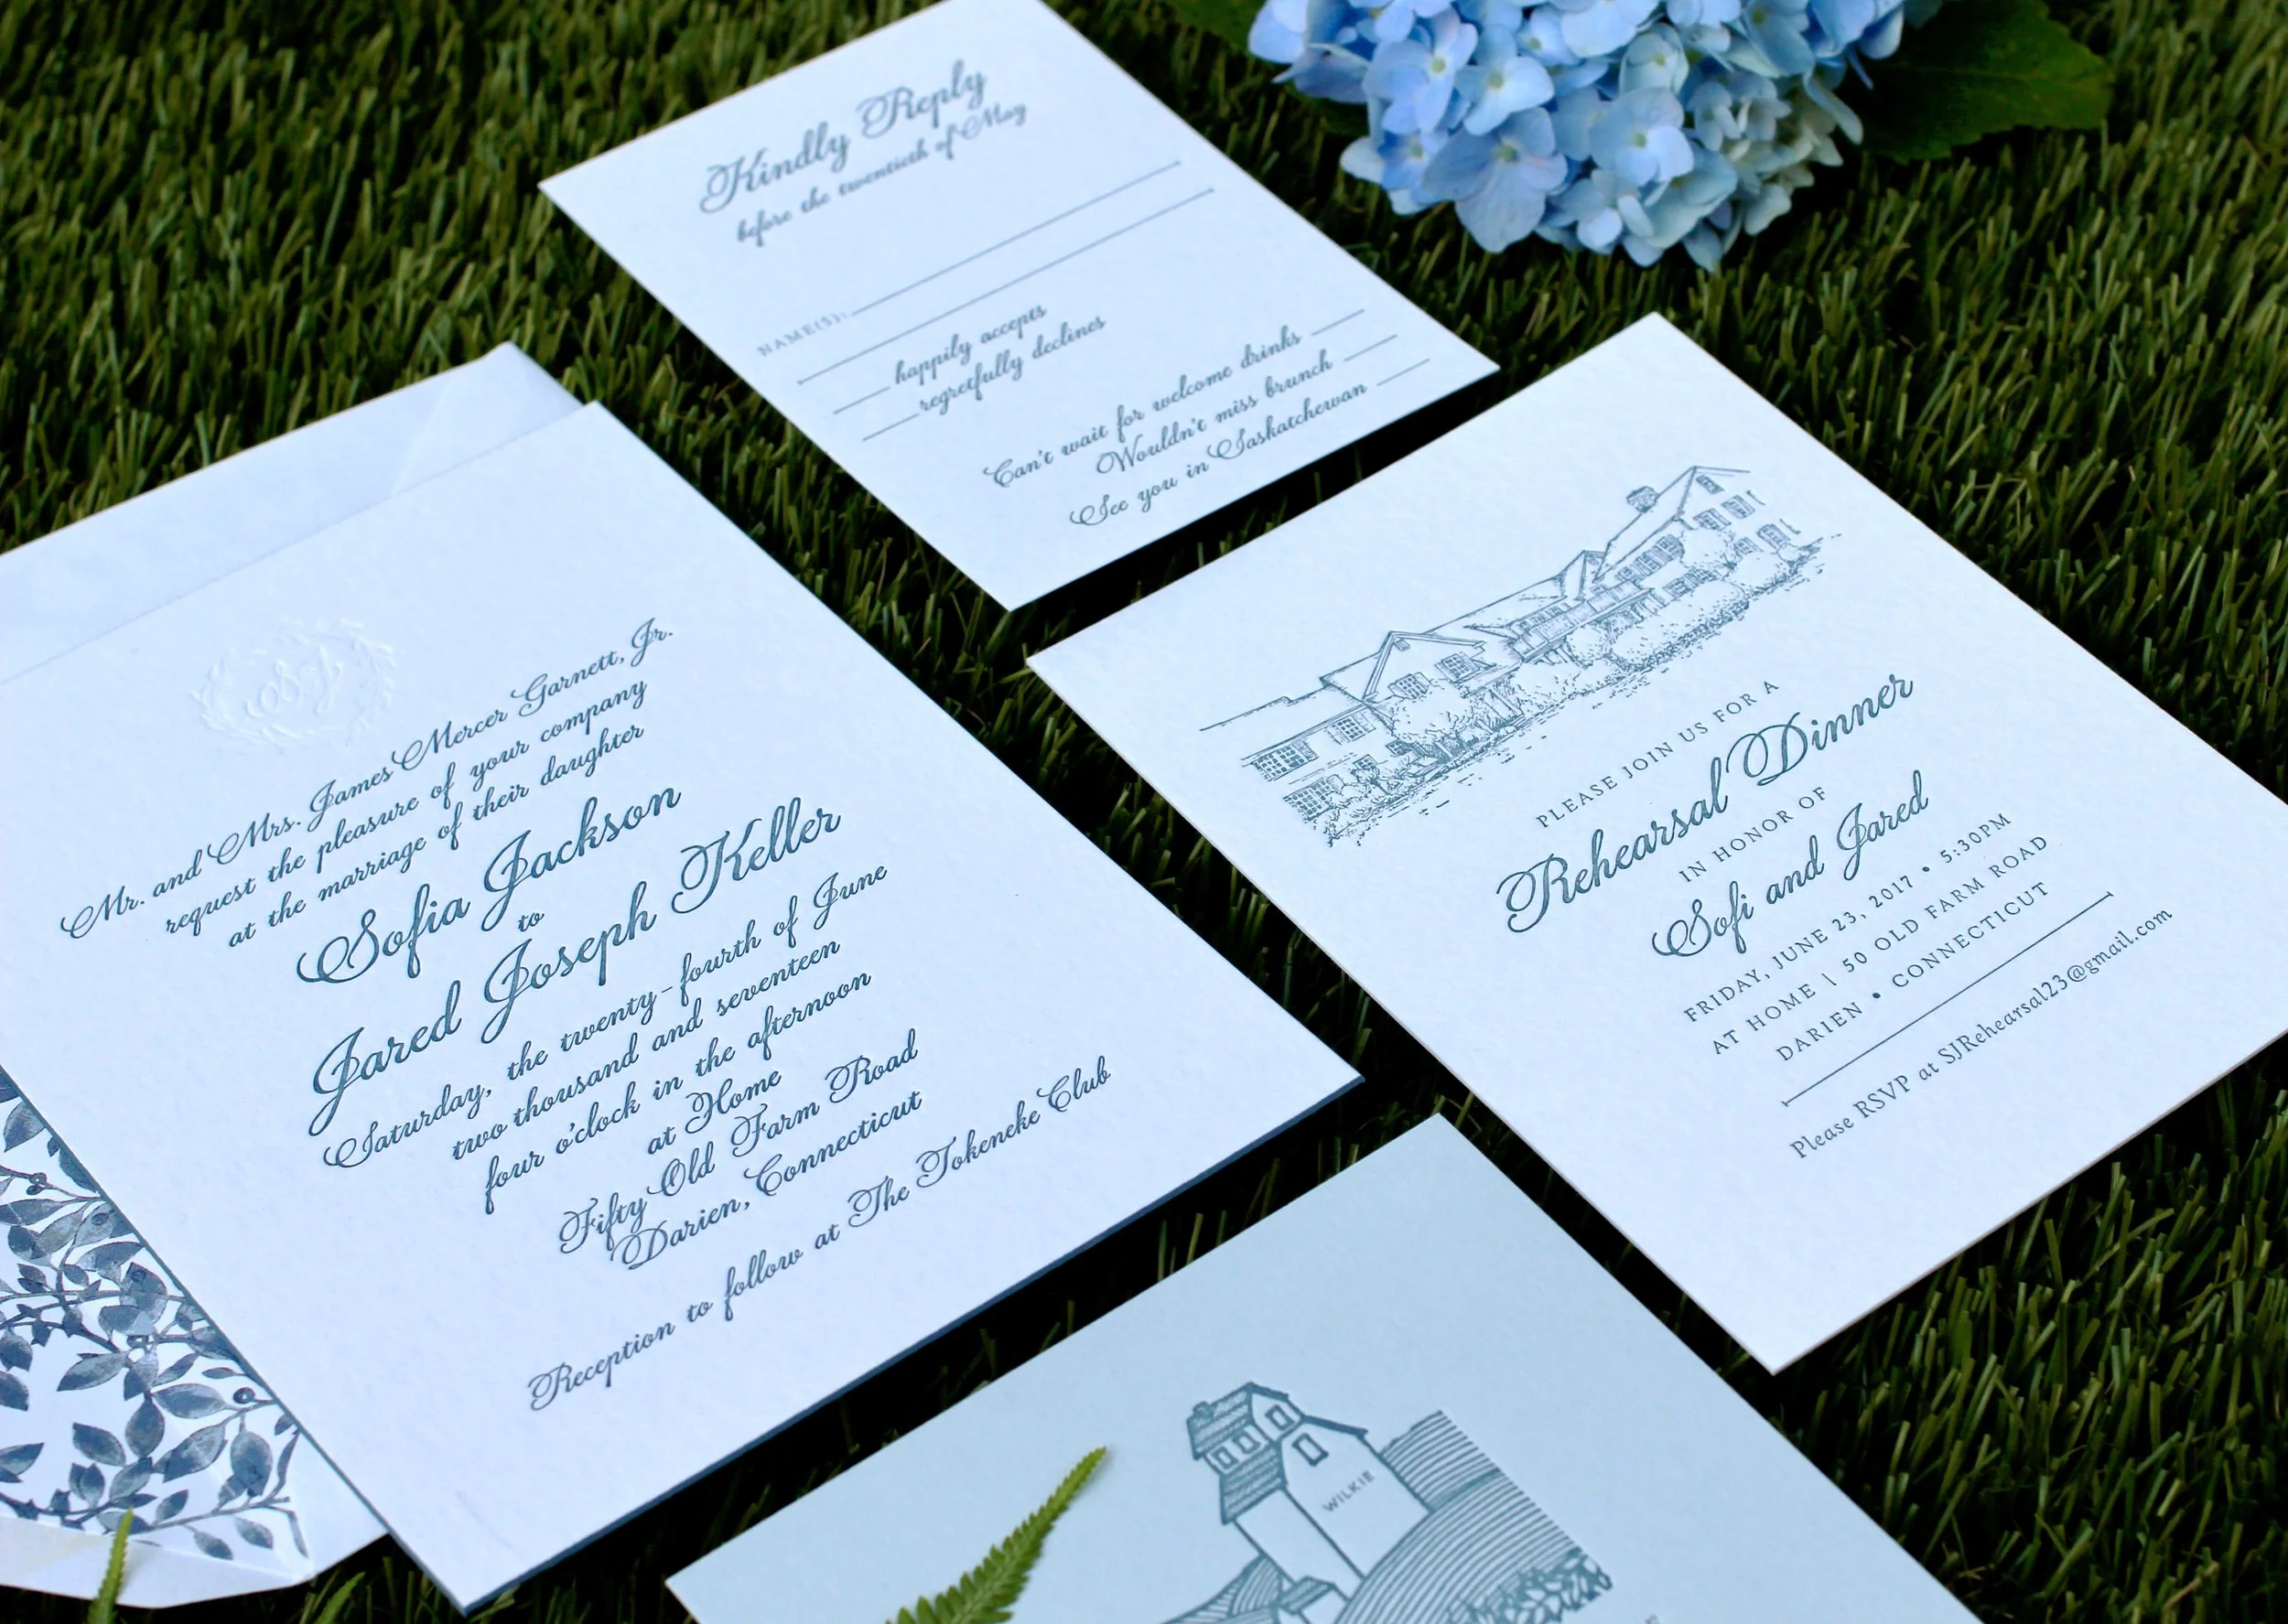 Kindly Reply
before the twentieth of May
NAME(S):
happily accepts
regretfully declines
Can't wait for welcome drinks
Wouldn't miss brunch
See you in Saskatchewan
SJ
Mr. and Mrs. James Mercer Garnett, Jr.
request the pleasure of your company
at the marriage of their daughter
Sofia Jackson
to
Jared Joseph Keller
Saturday, the twenty-fourth of June
two thousand and seventeen
four o'clock in the afternoon
at Home
Fifty Old Farm Road
Darien, Connecticut
Reception to follow at The Tokeneke Club
PLEASE JOIN US FOR A
Rehearsal Dinner
IN HONOR OF
Sofi and Jared
FRIDAY, JUNE 23, 2017 • 5:30PM
AT HOME | 50 OLD FARM ROAD
DARIEN • CONNECTICUT
Please RSVP at SJRehearsal23@gmail.com
WILKIE